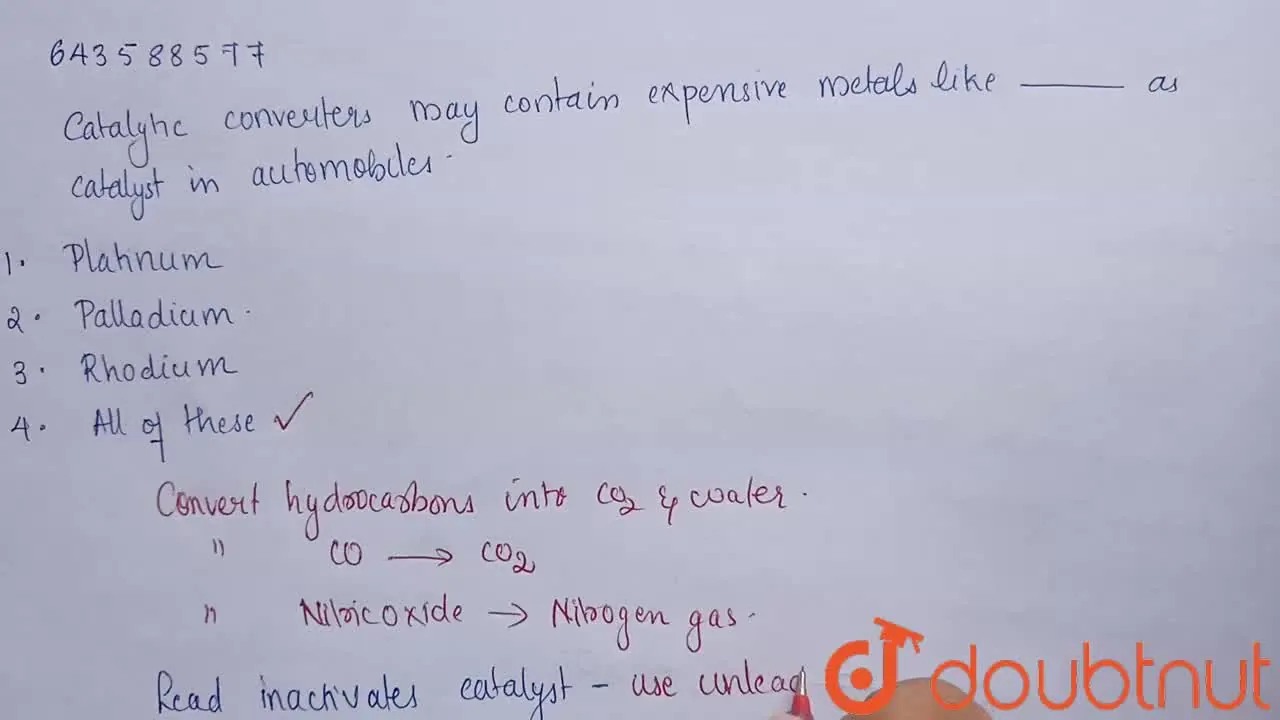 643588577
Catalytic converters may contain expensive metals like ——— as
catalyst in automobiles.
1. Platinum
2. Palladium.
3. Rhodium
4. All of these ✓
Convert hydrocarbons into CO2 & water.
" CO → CO2
" Nitric oxide → Nitrogen gas.
Lead inactivates catalyst - use unlead
doubtnut